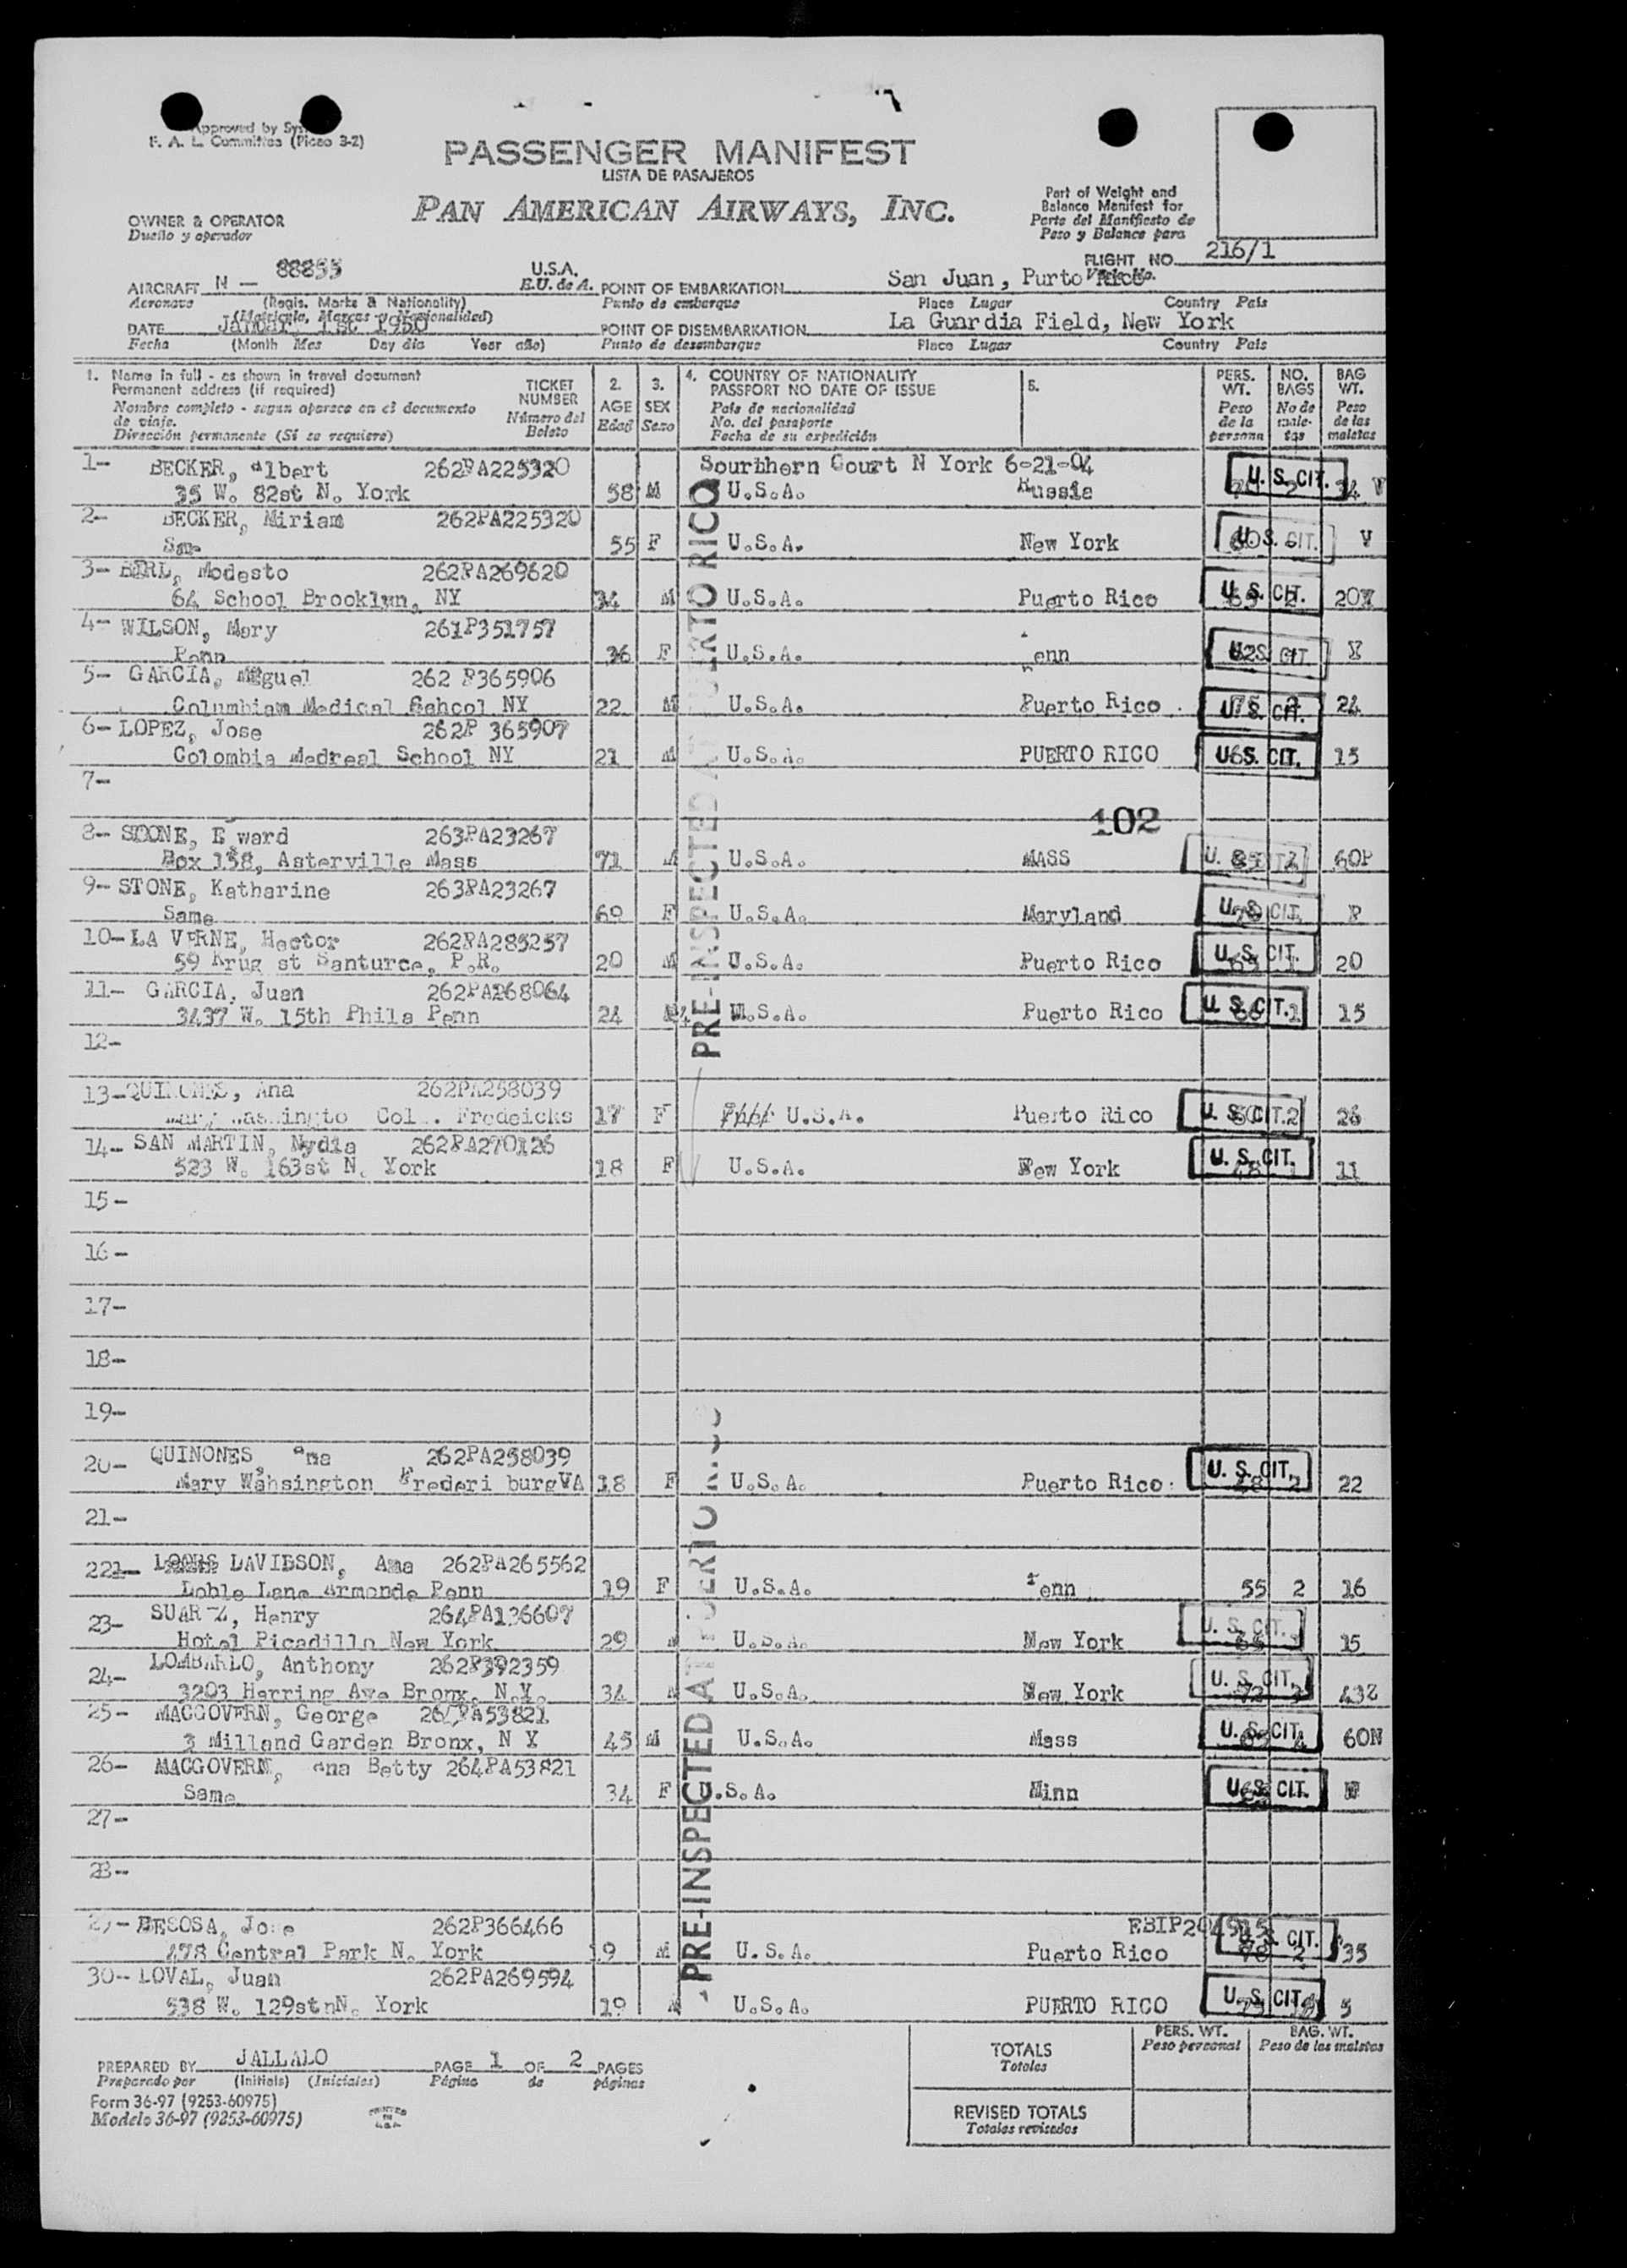 Approved by
F. A. L. Committee (Picao 3-2)
PASSENGER MANIFEST
LISTA DE PASAJEROS
PAN AMERICAN AIRWAYS, INC.
Part of Weight and
Balance Manifest for
Parte del Manifiesto de
Peso y Balance para
OWNER & OPERATOR
Dueño y operador
FLIGHT NO. 216/1
AIRCRAFT N — 88855 U.S.A. POINT OF EMBARKATION San Juan, Purto Rico
Aeronave (Regis. Marks & Nationality) E.U. de A. Punto de embarque Place Lugar Country País
(Matrícula, Marcas y Nacionalidad)
DATE 1st 1950 POINT OF DISEMBARKATION La Guardia Field, New York
Fecha (Month Mes Day día Year año) Punto de desembarque Place Lugar Country País
1. Name in full - as shown in travel document
Permanent address (if required)
Nombre completo - segun aparece en el documento
de viaje.
Dirección permanente (Si se requiere)
TICKET
NUMBER
Número del
Boleto
2.
AGE
Edad
3.
SEX
Sexo
4. COUNTRY OF NATIONALITY
PASSPORT NO DATE OF ISSUE
País de nacionalidad
No. del pasaporte
Fecha de su expedición
5.
PERS.
WT.
Peso
de la
persona
NO.
BAGS
No de
male-
tas
BAG
WT.
Peso
de las
maletas
1- BECKER, Albert 262PA225320 Sourthern Court N York 6-21-04
35 W. 82st N. York 58 M U.S.A. Russia U. S. CIT. 34 V
2- BECKER, Miriam 262PA225320
Same 55 F U.S.A. New York U. S. CIT. V
3- Modesto 262PA269620
64 School Brooklyn, NY 34 M U.S.A. Puerto Rico U. S. CIT. 20X
4- WILSON, Mary 261P351757
Penn 36 F U.S.A. Penn U. S. CIT. X
5- GARCIA, Miguel 262 P365906
Columbiam Medical School NY 22 M U.S.A. Puerto Rico U. S. CIT. 24
6- LOPEZ, Jose 262P 365907
Colombia Medreal School NY 21 M U.S.A. PUERTO RICO U. S. CIT. 15
7-
102
8- E ward 263PA23267
Box 158, Asterville Mass 71 M U.S.A. MASS U. S. CIT. 60P
9- STONE, Katharine 263PA23267
Same 69 F U.S.A. Maryland U. S. CIT. P
10- LA VERNE, Hector 262PA285257
59 Krug st Santurce, P.R. 20 M U.S.A. Puerto Rico U. S. CIT. 20
11- GARCIA, Juan 262PA268064
3437 W. 15th Phila Penn 24 U.S.A. Puerto Rico U. S. CIT. 15
12-
13- QUINONES, Ana 262PA258039
Col . Fredeicks 17 F U.S.A. Puerto Rico U. S. CIT. 26
14- SAN MARTIN, Nydia 262PA270126
523 W. 163st N. York 18 F U.S.A. New York U. S. CIT. 11
15-
16-
17-
18-
19-
20- QUINONES, Ana 262PA258039
Mary Wahsington Frederi burgVA 18 F U.S.A. Puerto Rico U. S. CIT. 22
21-
22- Ama 262PA265562
Penn 19 F U.S.A. Penn 55 2 16
23- SUAR Z, Henry 264PA136607
Hotel Picadillo New York 29 M U.S.A. New York U. S. CIT. 15
24- LOMBARLO, Anthony 262P392359
3203 Herring Ave Bronx, N.Y. 34 M U.S.A. New York U. S. CIT. 43Z
25- MACGOVERN, George 264PA53821
3 Milland Garden Bronx, N Y 45 M U.S.A. Mass U. S. CIT. 60N
26- MACGOVERN, Ana Betty 264PA53821
Same 34 F U.S.A. Minn U. S. CIT. N
27-
28-
29- Jose 262P366466
478 Central Park N. York 19 M U.S.A. Puerto Rico U. S. CIT. 35
30- LOVAL, Juan 262PA269594
538 W. 129stnN. York 19 M U.S.A. PUERTO RICO U. S. CIT. 5
PRE-INSPECTED AT PUERTO RICO
PRE-INSPECTED AT PUERTO RICO
PREPARED BY JALLALO PAGE 1 OF 2 PAGES
Preparado por (Initials) (Iniciales) Página de páginas
Form 36-97 (9253-60975)
Modelo 36-97 (9253-60975)
PRINTED
IN
U.S.A.
PERS. WT.
Peso personal
BAG. WT.
Peso de las maletas
TOTALS
Totales
REVISED TOTALS
Totales revisados